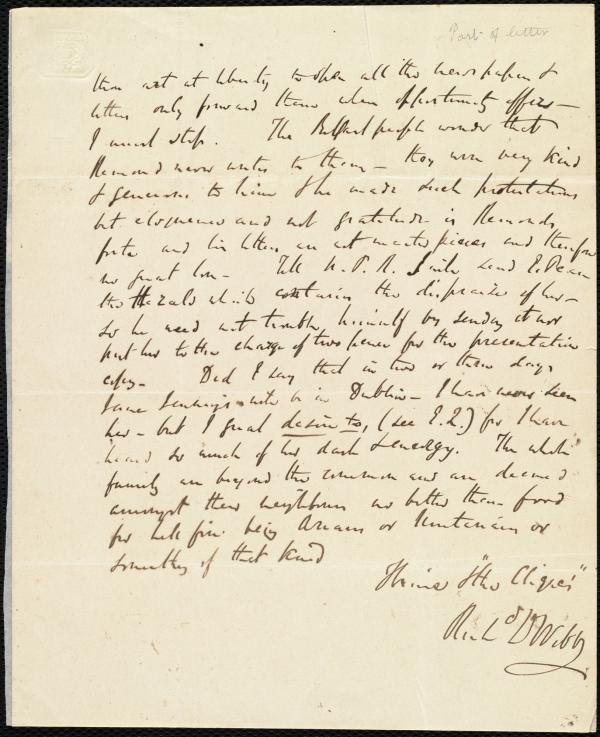 Part of letter
thou art at liberty to open all the newspapers &
letters only forward them when opportunity offers —
I must stop. The Belfast people wonder that
Remond never writes to them — they were very kind
& generous to him & he made such protestations
but eloquence and not gratitude is Remonds
forte and his letters are not masterpieces and therefore
no great loss — Tell N. P. R. I will send E. Pease
the Heralds which contains the dispraise of her —
so he need not trouble himself by sending it nor
put her to the charge of two pence for the presentation
copy — Did I say that in two or three days
Jane Jennings will be in Dublin — I have never seen
her — but I great desire to, (see E. Q.) for I have
heard so much of her dash & energy. The whole
family are beyond the common and are deemed
amongst their neighbours no better than food
for hell fire being Arians or Unitarians or
something of that kind
Thine & "the Cliques"
Rich^d D Webb